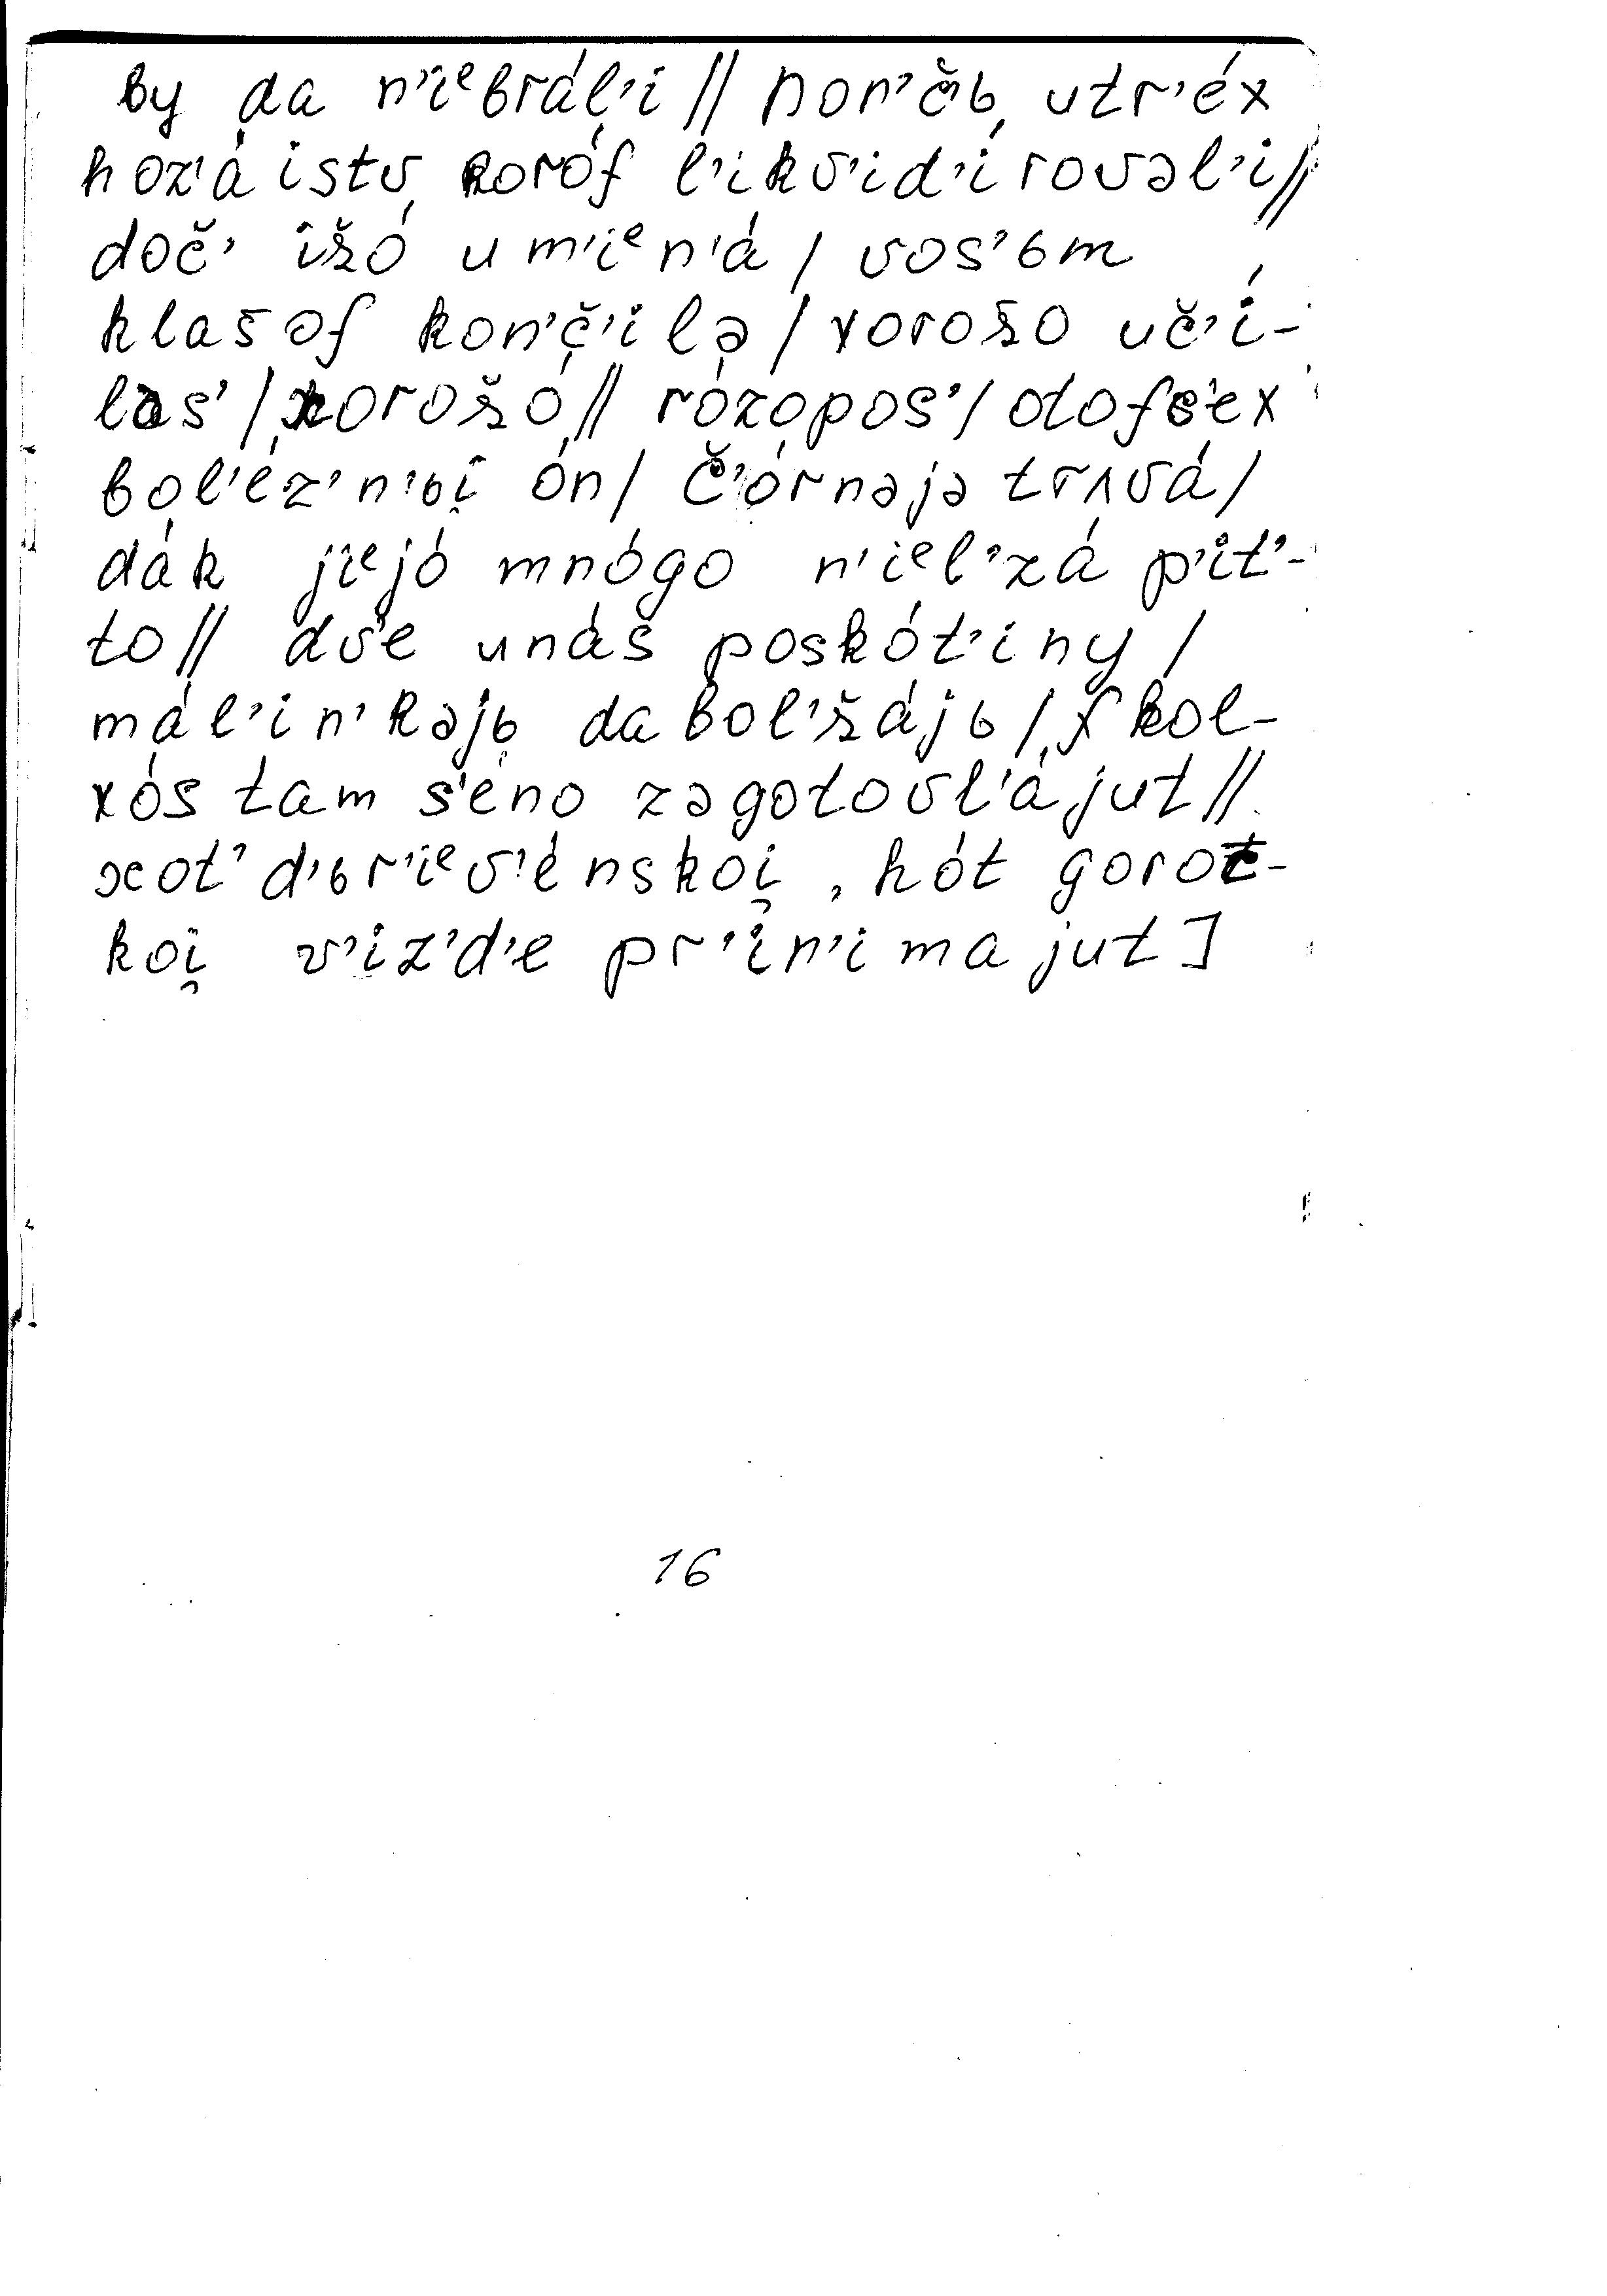 by da n'iᵉbrál'i // non'čь utr'éx
hoz'áistv koróf l'ikv'id'írovəl'i //
doč' išó u m'iᵉn'á / vos'ьm
klašof kon'č'ilə / xorošo uč'í-
las' / xorošó // rózopos' / otofs'ex
bol'éz'n'ьi̯ ón / č'órnəjə trʌvá /
dák jiᵉjó mnógo n'iᵉl'zá p'it'-
to // dv'e unás poskót'iny /
mál'in'kəjь da bol'šájь / f kol-
xós tam s'éno zəgotovl'ájut //
xot' d'ьr'iᵉv'énskoi̯, hót gorot-
koi̯ v'iz'd'e pr'in'imajut ]
16